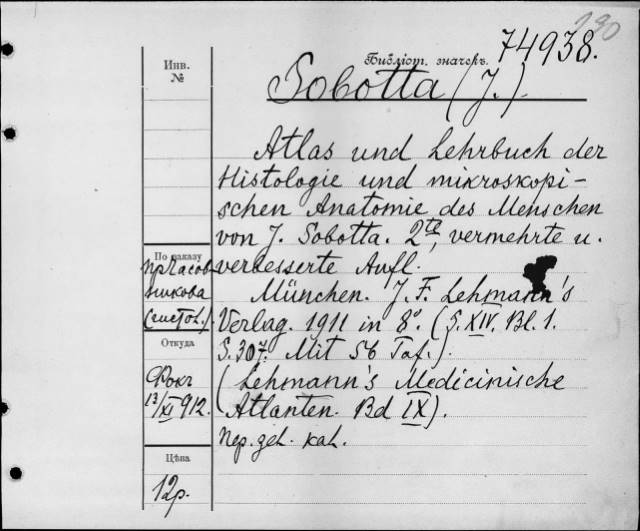 190
Библіот. значекъ. 74938.
Sobotta (J.)
Инв.
№
Atlas und Lehrbuch der
Histologie und mikroskopi-
schen Anatomie des Menschen
von J. Sobotta. 2te, vermehrte u.
verbesserte Aufl.
München. J. F. Lehmann's
Verlag. 1911 in 8°. (S. XIV. Bl. 1.
S. 307. Mit 56 Taf.).
(Lehmann's Medicinische
Atlanten. Bd IX).
Пер. цел. кал.
По заказу
пр Часов
никова
(гистол.).
Откуда
Фокъ
13/XI 912.
Цѣна
12р.